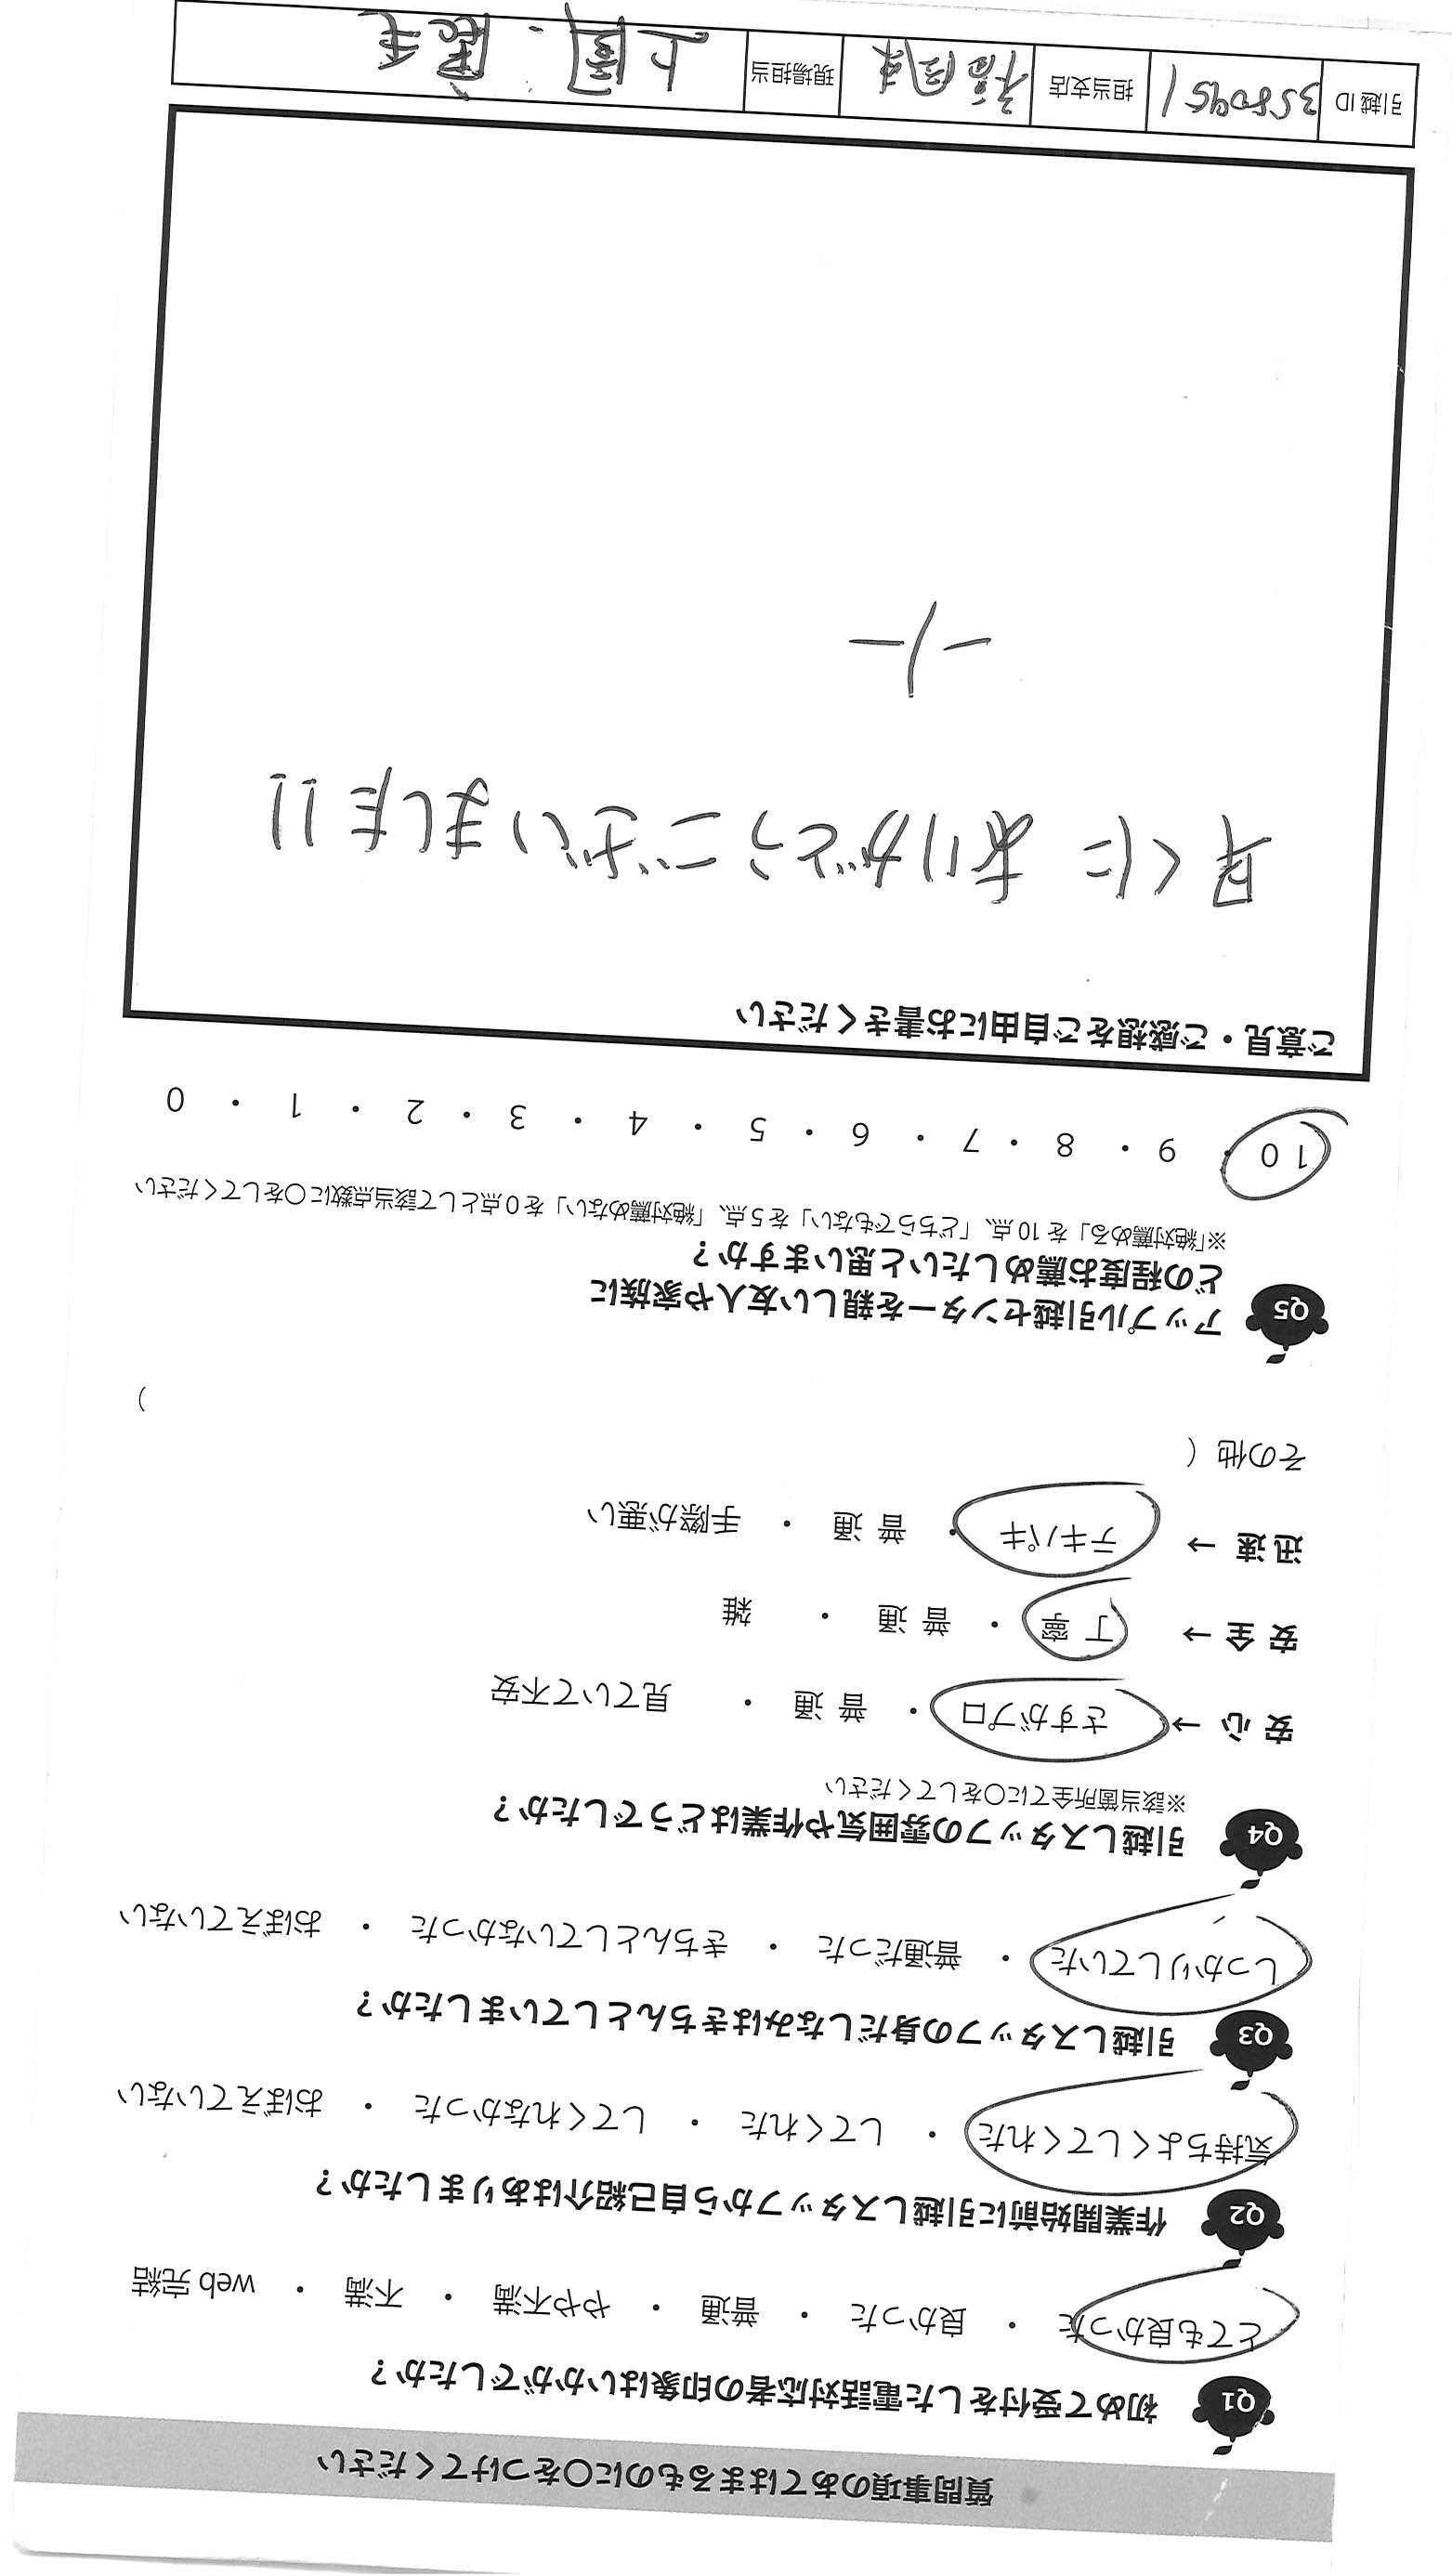 質問事項のあてはまるものに○をつけてください
Q1 初めて受付をした電話対応者の印象はいかがでしたか?
とても良かった ・ 良かった ・ 普通 ・ やや不満 ・ 不満 ・ web 完結
Q2 作業開始前に引越しスタッフから自己紹介はありましたか?
気持ちよくしてくれた ・ してくれた ・ してくれなかった ・ おぼえていない
Q3 引越しスタッフの身だしなみはきちんとしていましたか?
しっかりしていた ・ 普通だった ・ きちんとしていなかった ・ おぼえていない
Q4 引越しスタッフの雰囲気や作業はどうでしたか?
※該当箇所全てに○をしてください
安心 → さすがプロ ・ 普通 ・ 見ていて不安
安全 → 丁寧 ・ 普通 ・ 雑
迅速 → テキパキ ・ 普通 ・ 手際が悪い
その他 ( )
Q5 アップル引越センターを親しい友人や家族に
どの程度お薦めしたいと思いますか?
※「絶対薦める」を 10 点、「どちらでもない」を 5 点、「絶対薦めない」を 0 点として該当点数に○をしてください
10 ・ 9 ・ 8 ・ 7 ・ 6 ・ 5 ・ 4 ・ 3 ・ 2 ・ 1 ・ 0
ご意見・ご感想をご自由にお書きください
早くに ありがとうございました!!
引越 ID 358095 担当支店 現場担当 上園・